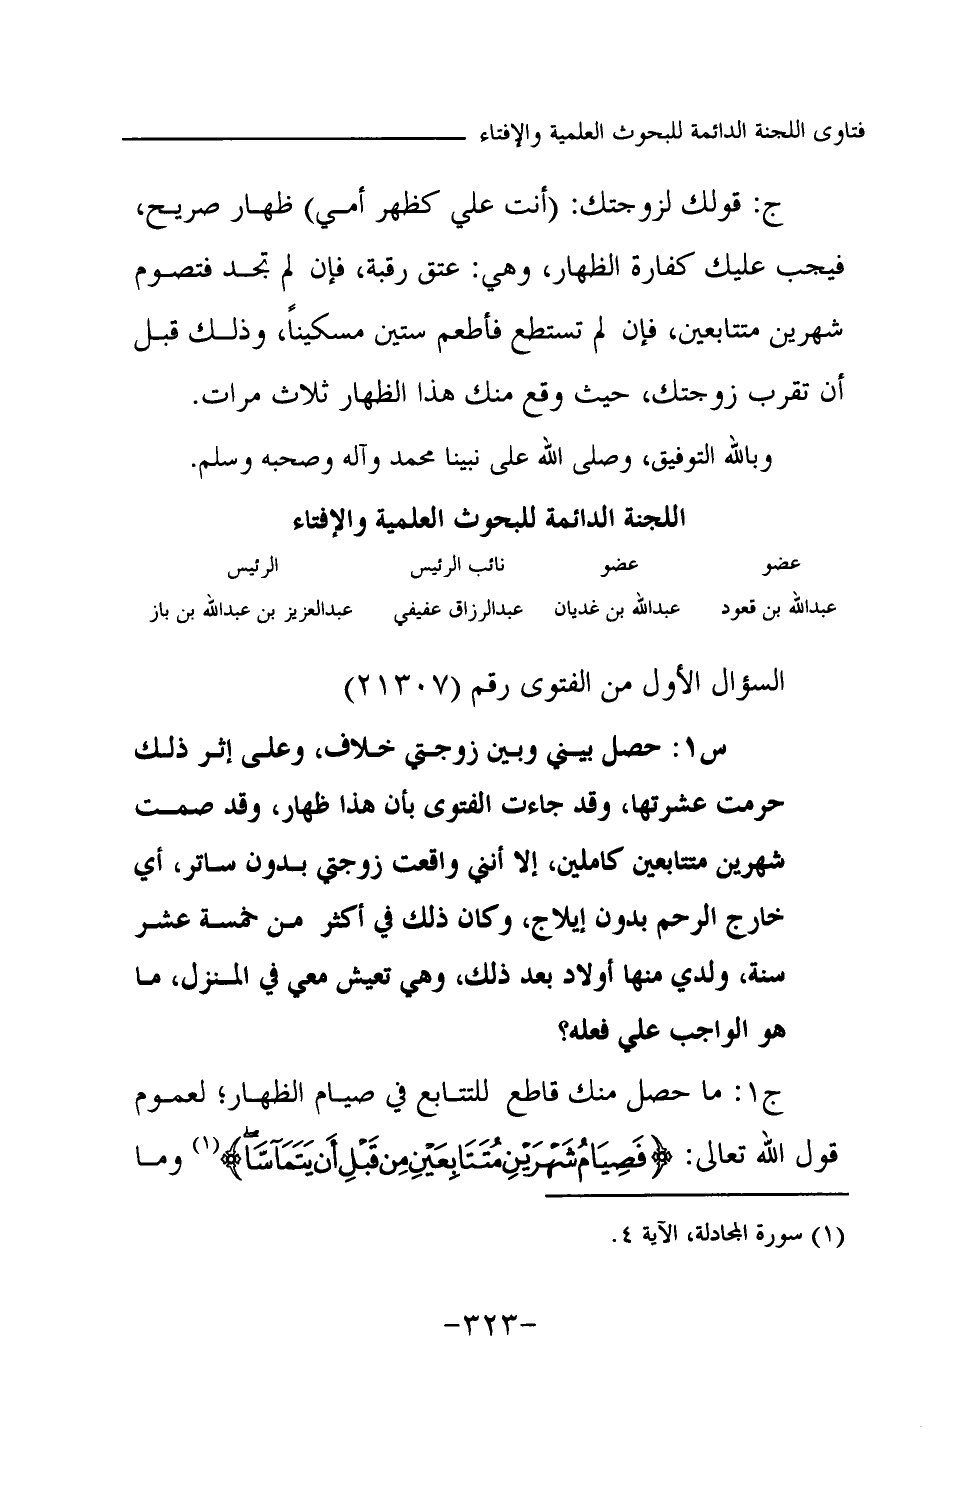 فتاوى اللجنة الدائمة للبحوث العلمية والإفتاء
ج: قولك لزوجتك: (أنت علي كظهر أمي) ظهار صريح،
فيجب عليك كفارة الظهار، وهي: عتق رقبة، فإن لم تجد فتصوم
شهرين متتابعين، فإن لم تستطع فأطعم ستين مسكيناً، وذلك قبل
أن تقرب زوجتك، حيث وقع منك هذا الظهار ثلاث مرات.
وبالله التوفيق، وصلى الله على نبينا محمد وآله وصحبه وسلم.
اللجنة الدائمة للبحوث العلمية والإفتاء
عضو عضو نائب الرئيس الرئيس
عبدالله بن قعود عبدالله بن غديان عبدالرزاق عفيفي عبدالعزيز بن عبدالله بن باز
السؤال الأول من الفتوى رقم (٢١٣٠٧)
س١: حصل بيني وبين زوجتي خلاف، وعلى إثر ذلك
حرمت عشرتها، وقد جاءت الفتوى بأن هذا ظهار، وقد صمت
شهرين متتابعين كاملين، إلا أنني واقعت زوجتي بدون ساتر، أي
خارج الرحم بدون إيلاج، وكان ذلك في أكثر من خمسة عشر
سنة، ولدي منها أولاد بعد ذلك، وهي تعيش معي في المنزل، ما
هو الواجب علي فعله؟
ج١: ما حصل منك قاطع للتتابع في صيام الظهار؛ لعموم
قول الله تعالى: ﴿فَصِيَامُ شَهْرَيْنِ مُتَتَابِعَيْنِ مِن قَبْلِ أَن يَتَمَآسَّا﴾(١) وما
(١) سورة المجادلة، الآية ٤.
-٣٢٣-